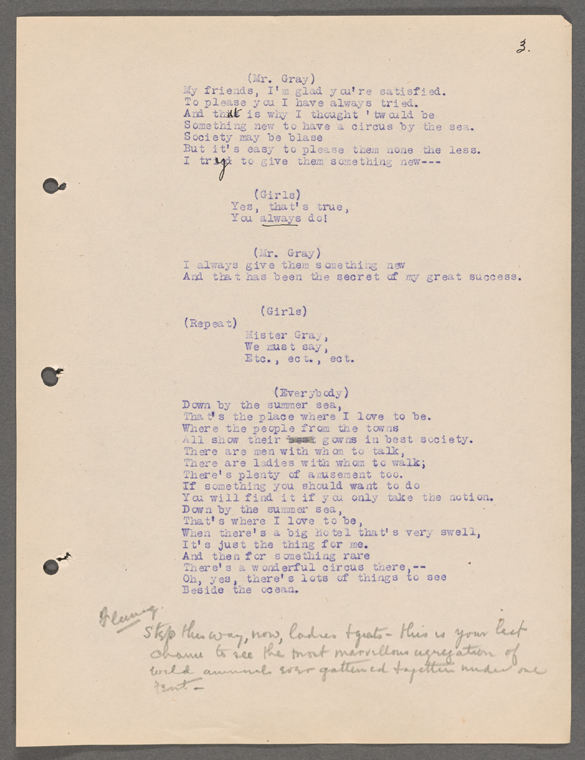 3.
(Mr. Gray)
My friends, I'm glad you're satisfied.
To please you I have always tried.
And that is why I thought 'twould be
Something new to have a circus by the sea.
Society may be blase
But it's easy to please them none the less.
I try to give them something new---
(Girls)
Yes, that's true,
You always do!
(Mr. Gray)
I always give them something new
And that has been the secret of my great success.
(Girls)
(Repeat)
Mister Gray,
We must say,
Etc., ect., ect.
(Everybody)
Down by the summer sea,
That's the place where I love to be.
Where the people from the towns
All show their gowns in best society.
There are men with whom to talk,
There are ladies with whom to walk;
There's plenty of amusement too.
If something you should want to do
You will find it if you only take the notion.
Down by the summer sea,
That's where I love to be,
When there's a big hotel that's very swell,
It's just the thing for me.
And then for something rare
There's a wonderful circus there,--
Oh, yes, there's lots of things to see
Beside the ocean.
Step this way, now, ladies & gents - this is your last
chance to see the most marvellous agregation of
wild animals ever gathered together under one
tent -